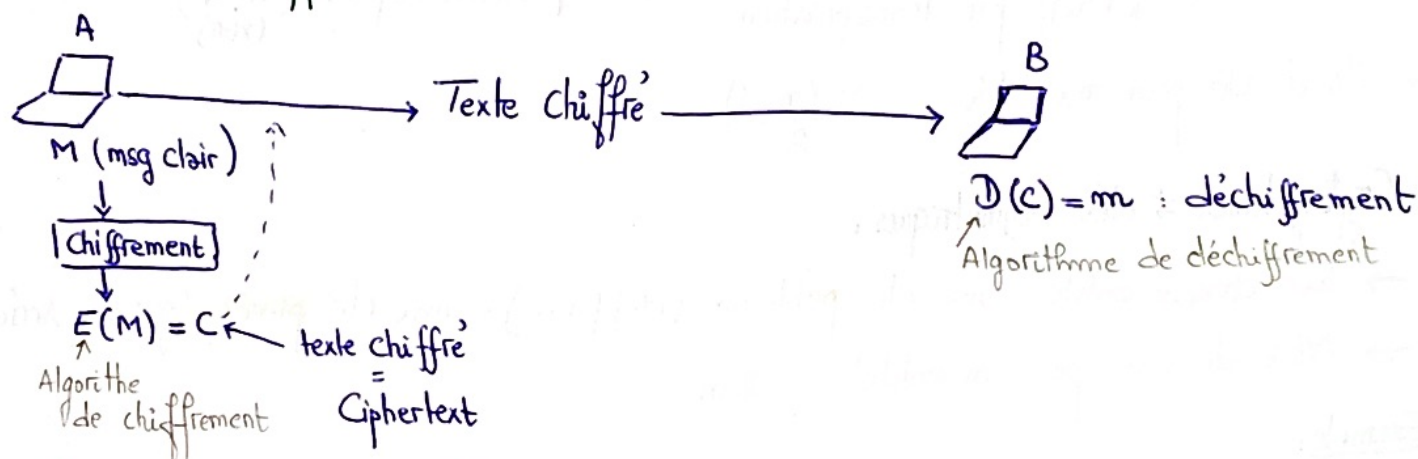 A
B
Texte Chiffré
M (msg clair)
Chiffrement
E(M) = C
texte chiffré
=
Ciphertext
Algorithe
de chiffrement
D(C) = m : déchiffrement
Algorithme de déchiffrement